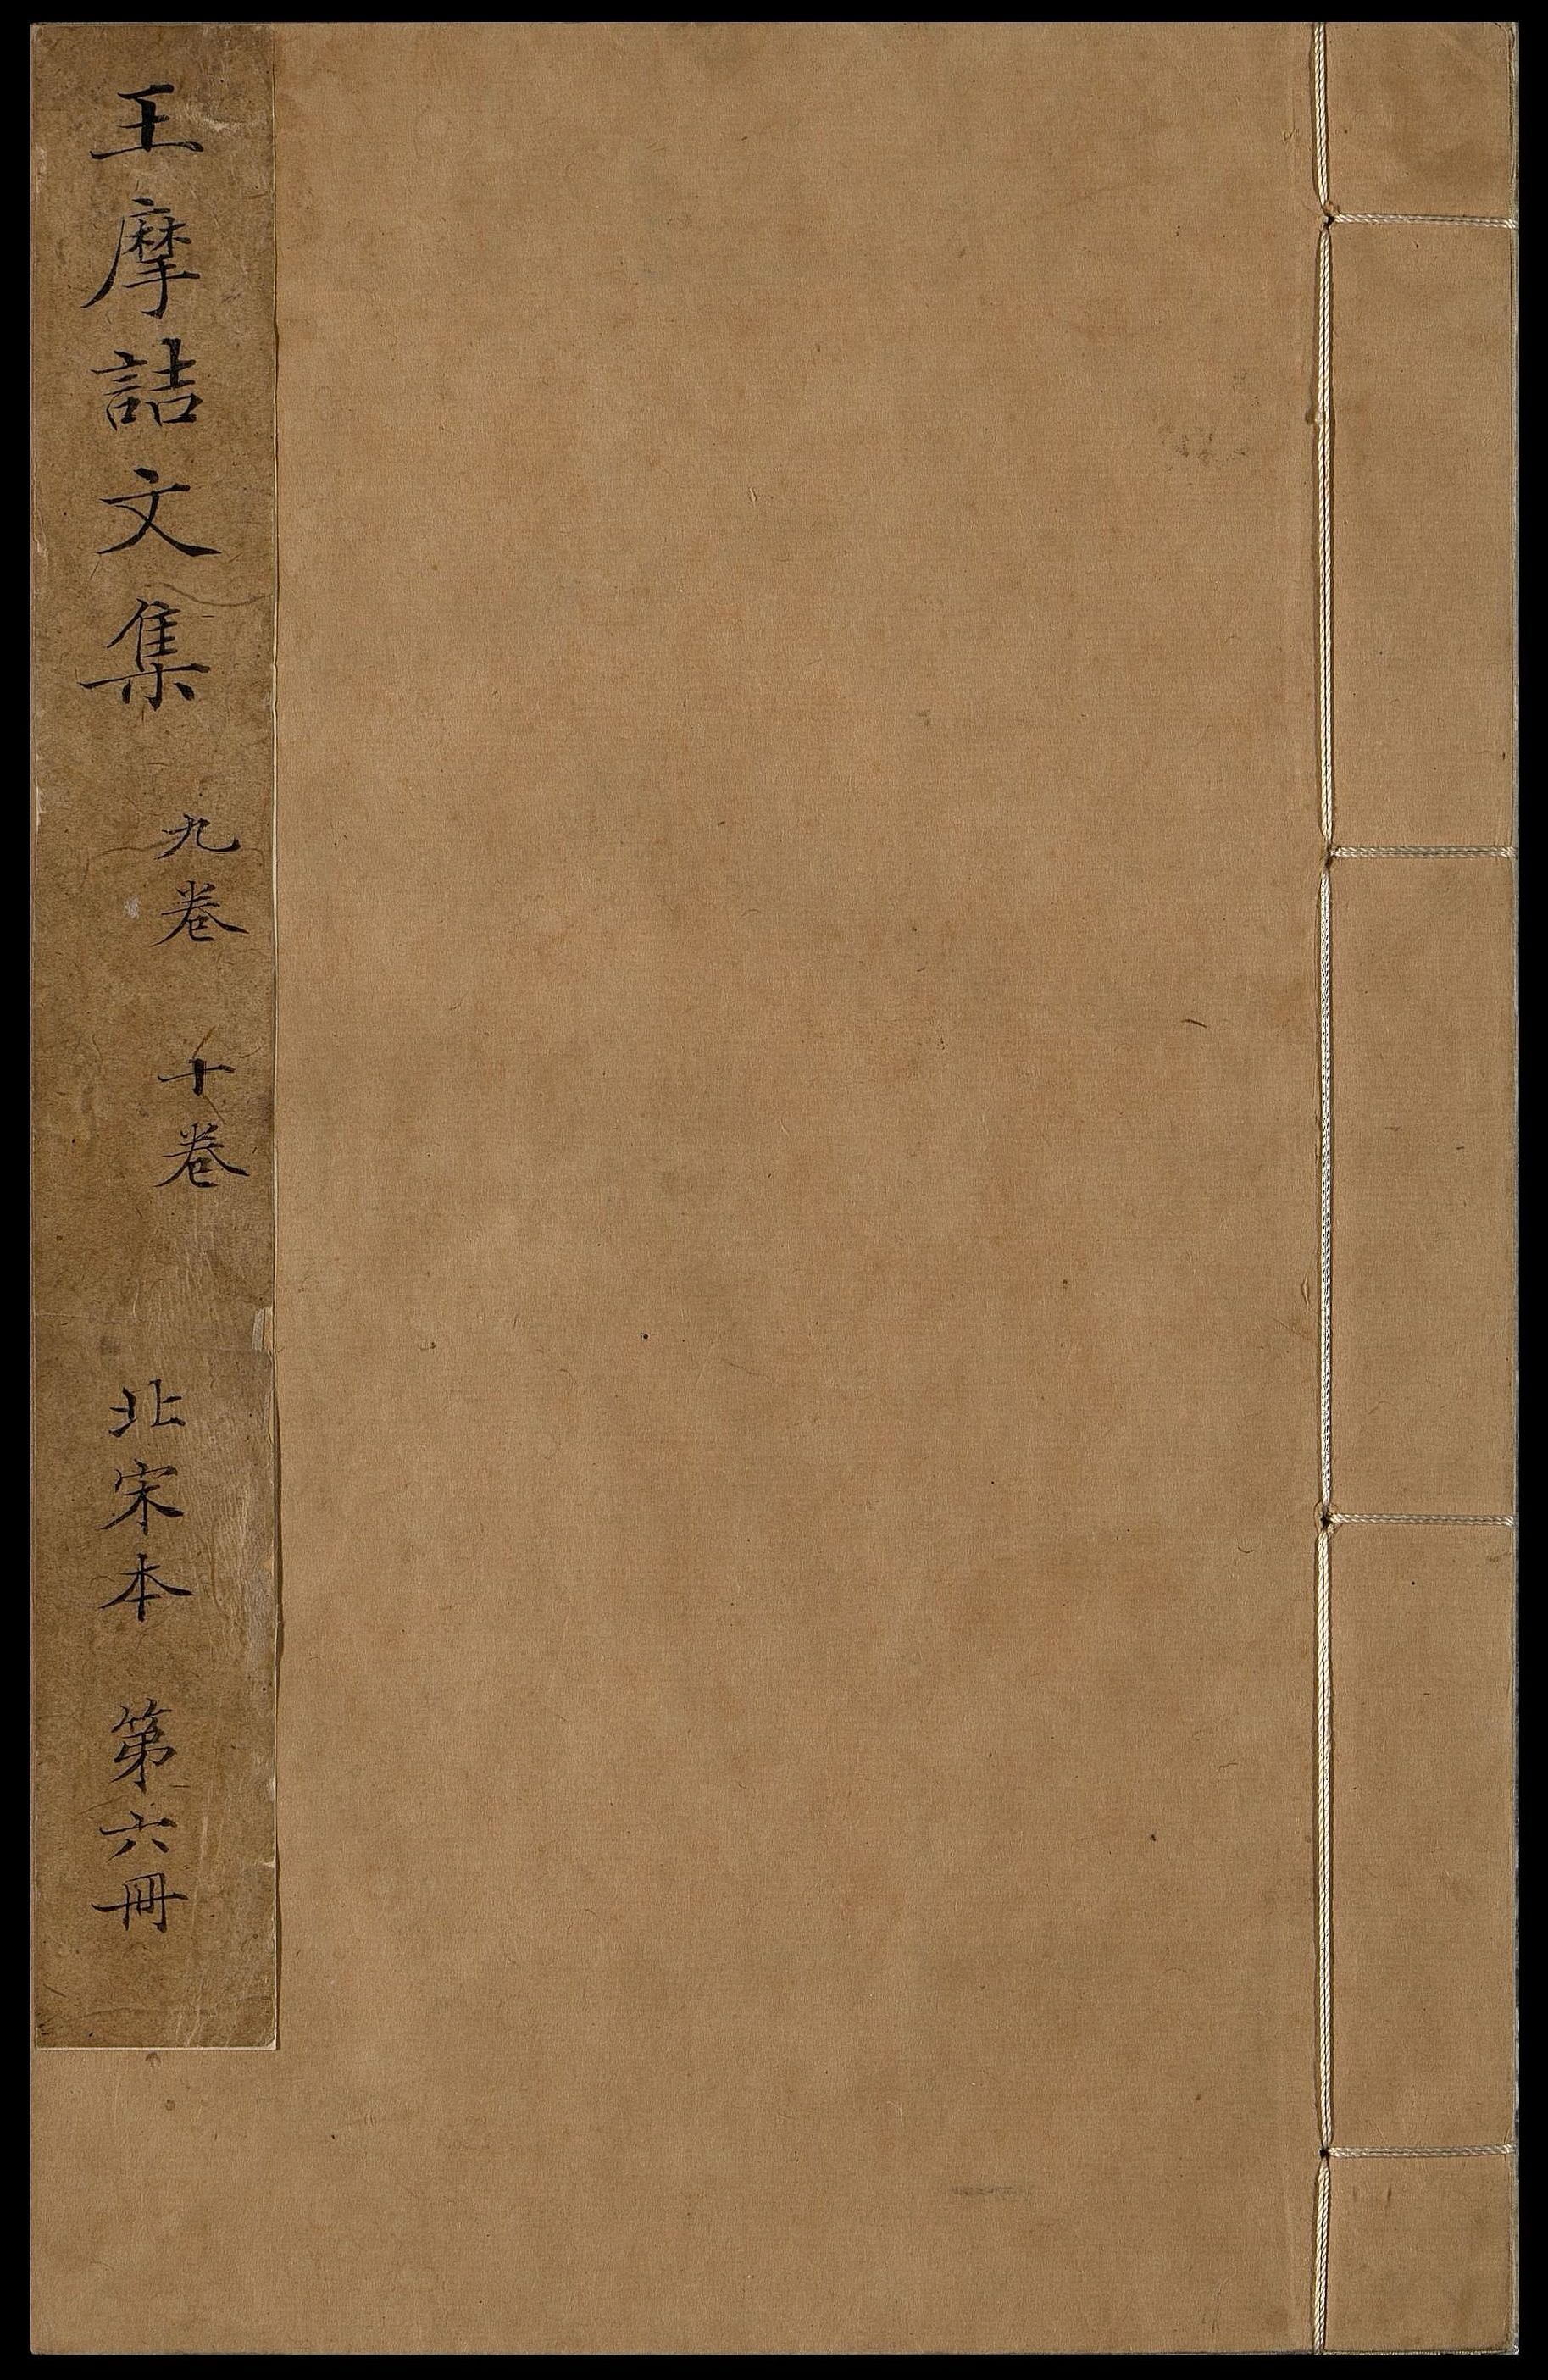 王摩詰文集
九卷 十卷
北宋本 第六冊